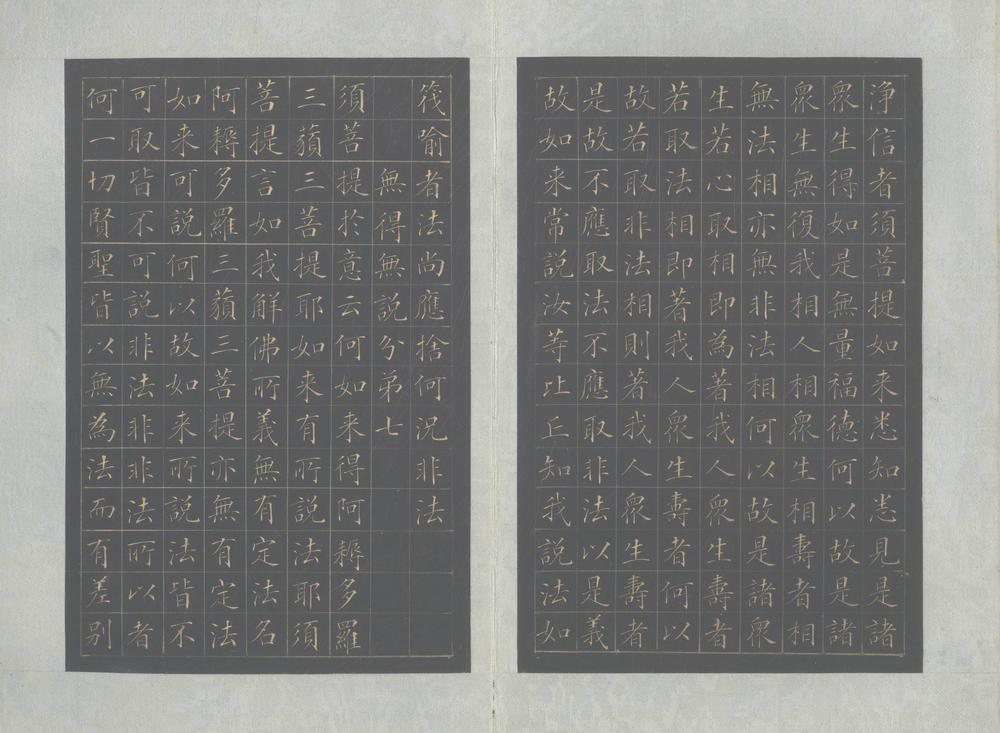 淨信者須菩提如来悉知悉見是諸
衆生得如是無量福德何以故是諸
衆生無復我相人相衆生相壽者相
無法相亦無非法相何以故是諸衆
生若心取相即為著我人衆生壽者
若取法相即著我人衆生壽者何以
故若取非法相則著我人衆生壽者
是故不應取法不應取非法以是義
故如来常說汝等比丘知我說法如
筏喻者法尚應捨何況非法
無得無說分弟七
須菩提於意云何如来得阿耨多羅
三藐三菩提耶如来有所說法耶須
菩提言如我解佛所義無有定法名
阿耨多羅三藐三菩提亦無有定法
如来可說何以故如来所說法皆不
可取皆不可說非法非非法所以者
何一切賢聖皆以無為法而有差别